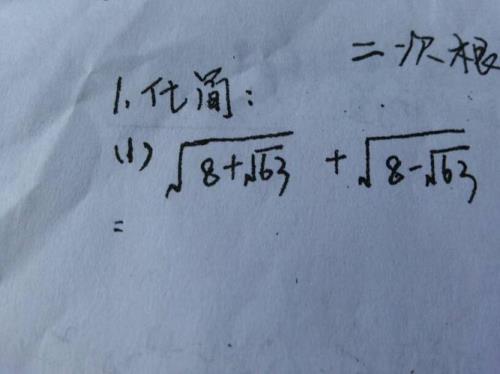 二次根
1.化简:
(1) √(8+√63) + √(8-√63)
=